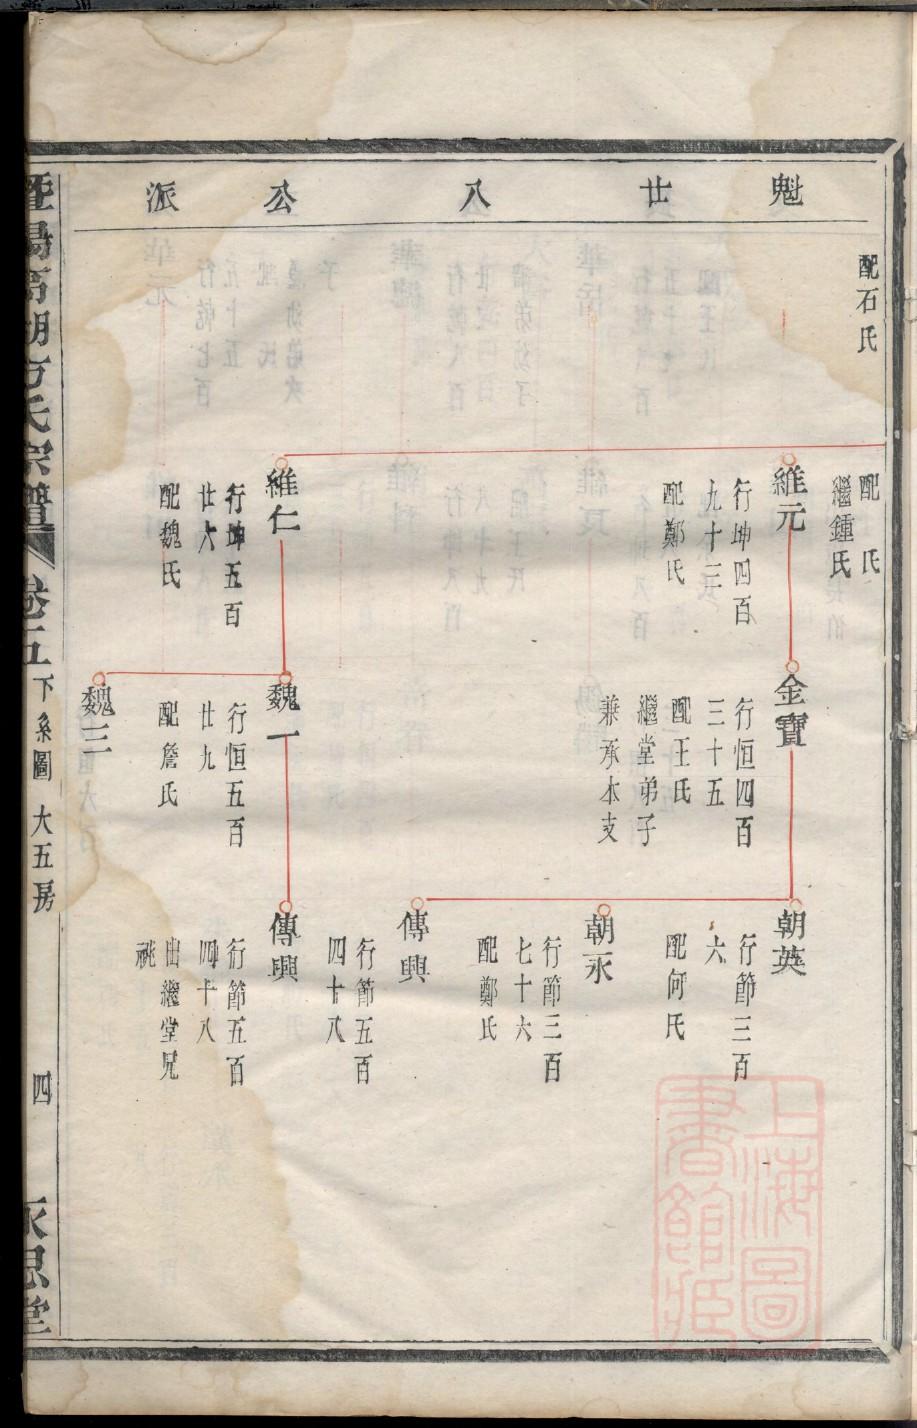 魁廿八公派
配石氏
配 氏
繼鍾氏
維元
行坤四百
九十三
配鄭氏
維仁
行坤五百
廿六
配魏氏
金寶
行恒四百
三十五
配王氏
繼堂弟子
兼承本支
魏一
行恒五百
廿九
配詹氏
魏三
朝英
行節三百
六
配何氏
朝永
行節三百
七十六
配鄭氏
傳興
行節五百
四十八
傳興
行節五百
四十八
出繼堂兄
祧
暨陽高湖方氏宗譜
卷五
下系圖 大五房
四
永思堂
上海圖書館藏